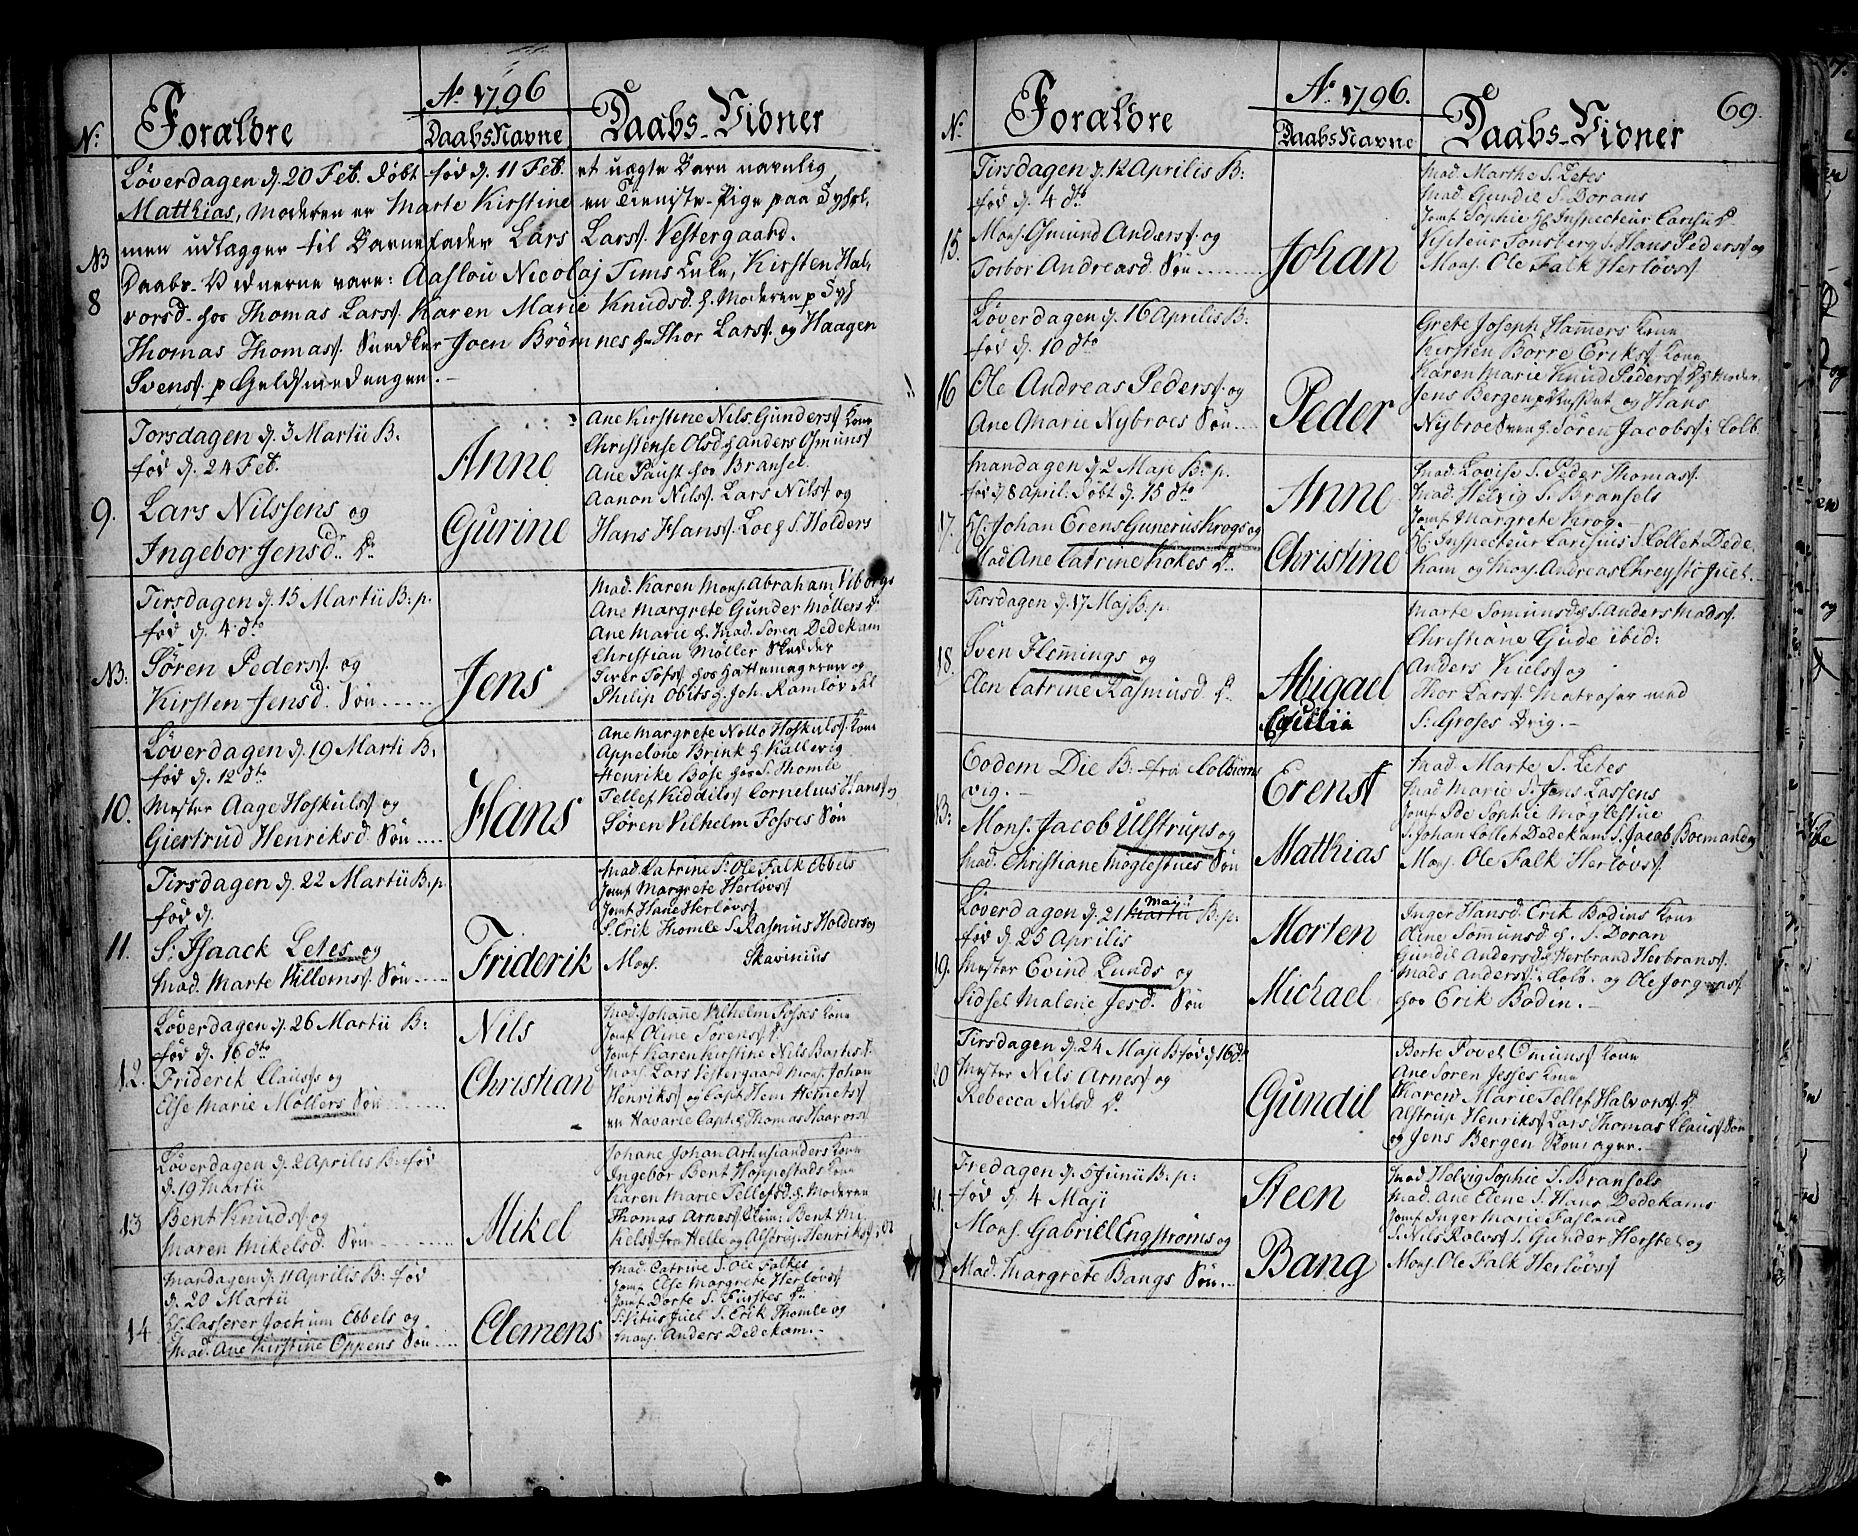 Ao 1796
No Forældre DaabsNavne Daabs-Vidner
Løverdagen d. 20 Feb. døbt født d. 11 Feb. et uægte Barn navnlig
Matthias, Moderen er Marte Kirstine en Tieniste-Pige paa
men udlagger til Barnefader Lars Larss. Vestergaard.
NB
8
Daabs-Vidnerne vare: Aaslou Nicolaj Kirsten Hal-
vorsd. hos Thomas Larss. Karen Marie Knudsd. h. Moderen p
Thomas Thomass. Snedker Joen Brømnes h. Thor Larss. og Haagen
Svenss. p Geldsmedengen.-
Torsdagen d. 3 Martii B.
fød d. 24 Feb.
9. Lars Nilssens og
Ingebor Jensd. Dr.
Anne
Gurine
Ane Kirstine Nils Gunderss. Kone
Christense Olsd h Anders Gmunss
Ane Paust hos Bransel.
Aanon Nilss. Lars Nilss og
Hans Hanss. Loe h S. Holders
Tirsdagen d. 15 Martii B. p.
fød d. 4 dto
NB: Søren Pederss. og
Kirsten Jensd. Søn......
Jens
Mad. Karen Mons. Abraham Viborgs
Ane Margrete Gunder Møllers Dr
Ane Marie h. Mad. Søren Dedekam
Christian Møller Snedder
Iver Tofs. hos Hattemageren og
Philip Obits h Joh. Ramløv
Løverdagen d. 19 Marti B.
fød d. 12 dto
10. Mester Aage Hoskulss og
Giertrud Henriksd. Søn....
Hans
Ane Margrete Nollo Hoskulss Kone
Appelone Brink h Kallevig
Henrike Bose hos S. Thomle
Tellef Kiddilss Cornelius Hanss og
Søren Vilhelm Fosses Søn
Tirsdagen d. 22 Martii B. p.
fød d.
11. S. Isaack Letes og
Mad. Marte Villemss. Søn......
Friderik
Mad. Catrine S. Ole Falk Ebbels
Jomf Margrete Herløvss
Jomf Hane Herløvss
S. Erik Thomle S. Rasmus Holders og
Mons. Skavinius
Løverdagen d. 26 Martii B:
fød d. 16 dto
12. Friderik Clauss og
Else Marie Møllers Søn..........
Nils
Christian
Mad. Johanne Vilhelm Fosses Kone
Jomf Oline Sørenss Dr
Jomf Karen Kirstine Nils Barths
Mons. Lars Vestergaard Mons. Johan
Henrikss og Capt. Hem
en Havarie Capt. Thomas
Løverdagen d. 2 Aprilis B: fød
d. 19 Martii
13 Bent Knudss og
Maren Mikelsd. Søn..........
Mikel
Johane Johan Kone
Ingebor Bent Hoppestads Kone
Karen Marie Tellefsd. h. Moderen
Thomas Arness Bent Mi-
kelss fra Helle og Alstrup Henrikss
Mandagen d. 11 Aprilis B: fød
d. 20 Martii
14 Hr. Casserer Jochum Ebbels og
Mad. Ane Kirstine Oppens Søn.....
Clemens
Mad. Catrine S. Ole Falkes
Jomf Else Margrete Herløvss
Jomf Dorte S. Furstes Dr
S. Vitus Juel S. Erik Thomle og
Mons. Anders Dedekam.-
69.
Ao 1796.
No Forældre DaabsNavne Daabs-Vidner
Tirsdagen d. 12 Aprilis B:
fød d. 4 dto
15. Mons. Gmund Anderss. og
Torbor Andreasd. Søn.......
Johan
Mad. Marthe S. Letes
Mad. Gundil S. Dorans
Jomf Sophie Hr. Inspecteur Carisii Dr
Visiteur Tonsberg S. Hans Pederss og
Mons. Ole Falk Herløvss
Løverdagen d. 16 Aprilis B:
fød d. 10 dto
16 Ole Andreas Pederss. og
Ane Marie Nybroes Søn....
Peder
Grete Joseph Hammers Kone
Kirsten Borre Erikss. Kone
Karen Marie Knud Pederss Dr h Moder
Jens Bergen og Hans
Nybroe Sven h. Søren Jacobss i Colb
Mandagen d. 2 Maji B: p.
fød d 8 April. døbt d. 15 dto
17. Hr. Johan Erens Gunerus Krogs og
Mad Ane Catrine Kokes Dr.
Anne
Christine
Mad. Lovise S. Peder Thomass.
Mad. Helvig S. Bransels
Jomf Margrete Krog.-
Hr. Inspecteur Carisius S. Collet Dede-
kam og Mons. Andreas Juel.
Tirsdagen d. 17 Maj B. p.
18. Sven Flemmings og
Elen Catrine Rasmusd. Dr.
Abigael
Marte Somunsd S. Anders Madss.
Christiane Gude ibid:
Anders Kielss og
Thor Larss. Matroser med
S. Groses Brig.-
Eodem Die B. fra Colbiorns
vig.-
13: Mons. Jacob Ulstrups og
Mad. Christiane Møglestues Søn
Erenst
Matthias
Mad. Marte S. Letes
Mad Marie S. Jens Lassens
Jomf Ide Sophie Møglestue
S. Johan Collet Dedekam S. Jacob Boeman og
Mons. Ole Falk Herløvss
Løverdagen d. 21 Martii Maji B: p:
fød d. 25 Aprilis
19. Mester Evind Lunds og
Sidsel Malene Jesd. Søn
Morten
Michael
Inger Hansd. Erik Bodins Kone
Elene Somunsd h. S. Doran
Gundil Andersd Herbrand Herbranss.
Mads Anderss i Colb. og Ole Jorgenss
hos Erik Bodin.-
Tirsdagen d. 24 Maji B fød d 16 do
20 Mester Nils Arness og
Rebecca Nilsd Dr.
Gundil
Berte Povel Omunss Kone
Ane Søren Jesses Kone
Karen Marie Tellef Halvorss. Dr
Alstrup Henrikss Lars Thomas Clauss Søn
og Jens Bergen Skomager.
Fredagen d. 5 Junii B. p:
fød d. 4 Maji
21. Mons. Gabriell Engstrøms og
Mad. Margrete Bangs Søn....
Steen
Bang
Mad Helvig Sophie S. Bransels
Mad. Ane Elene S. Hans Dedekams
Jomf Inger Marie Fasland
S. Nils Rolvss S. Gunder Herstel og
Mons. Ole Falk Herløvss